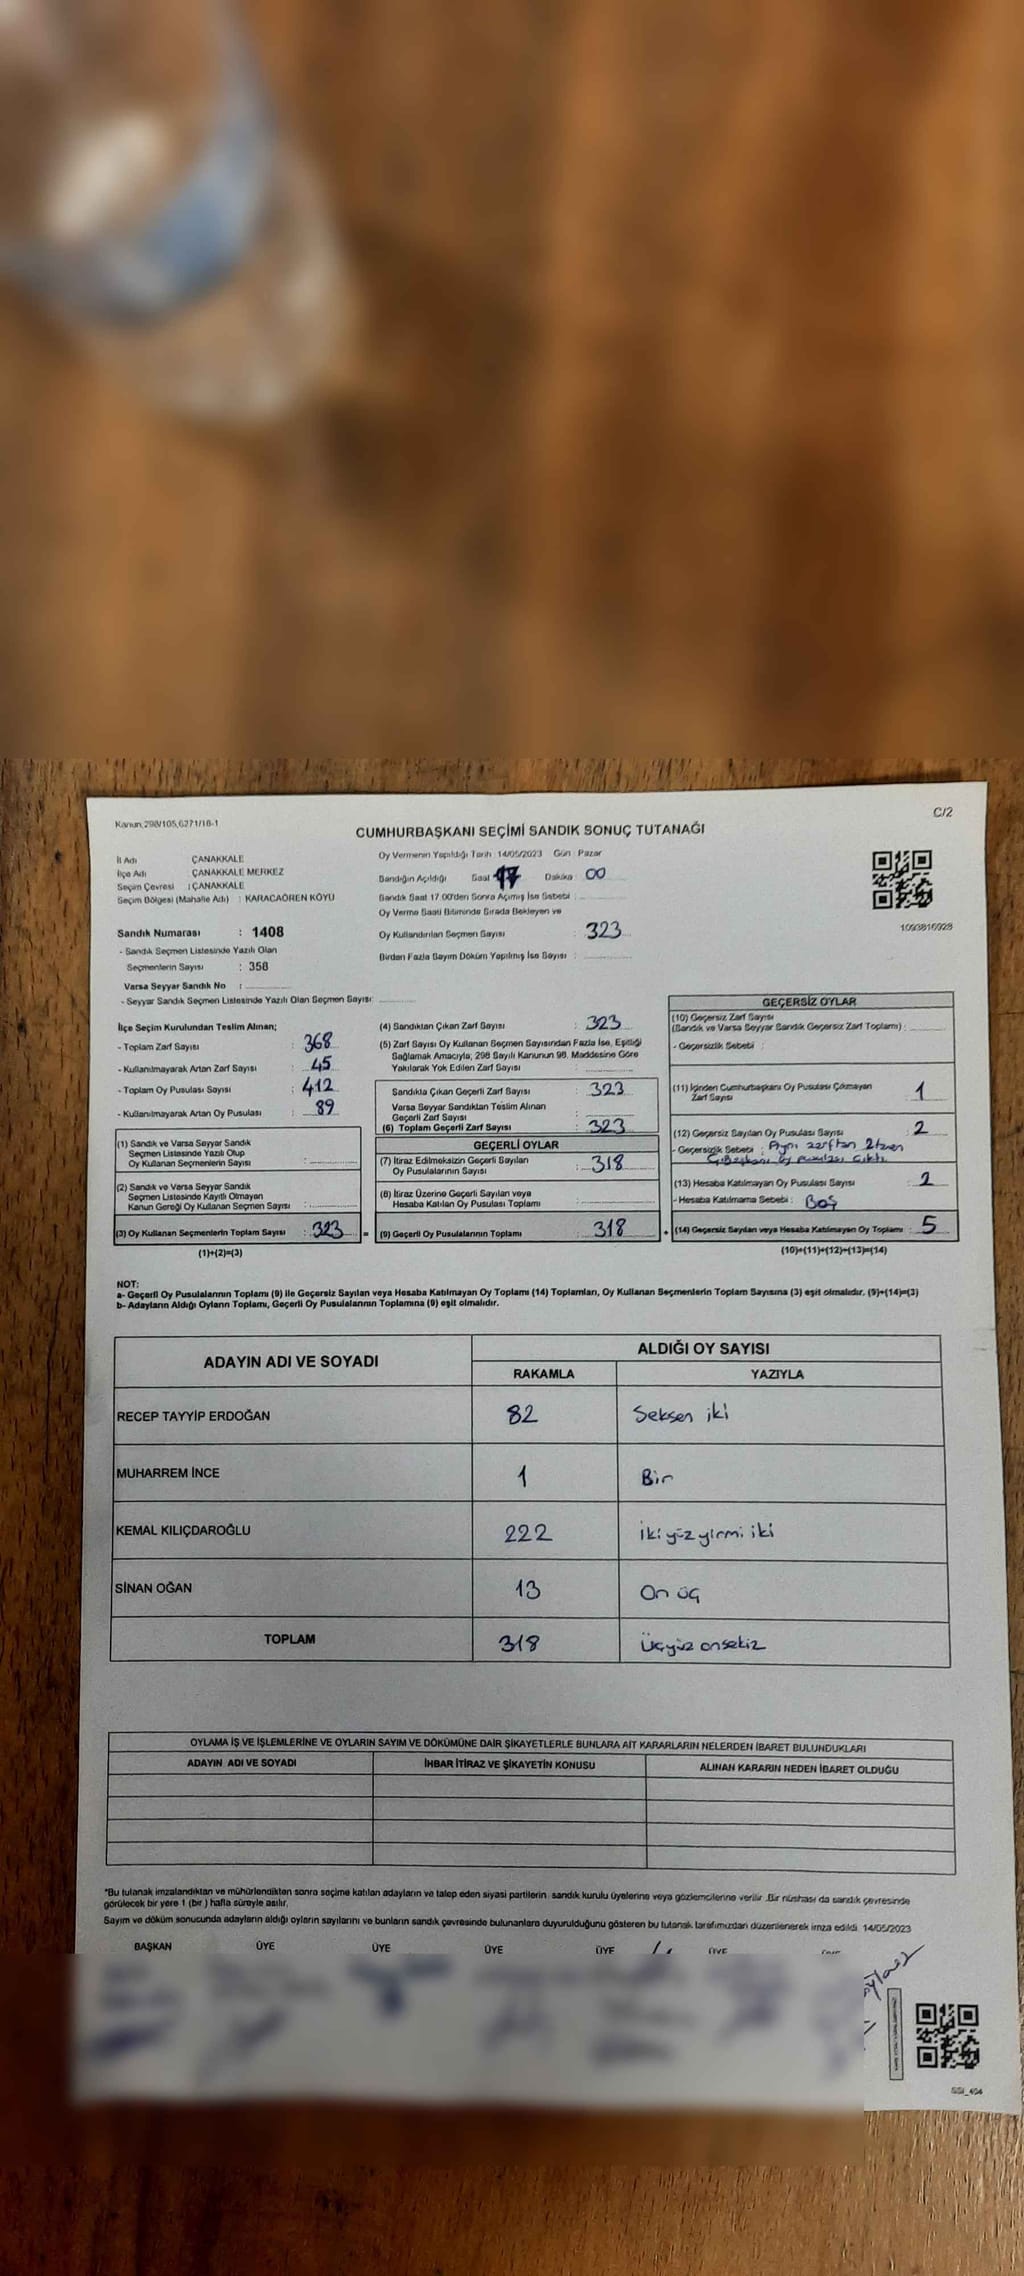 Kanun, 298/105,6271/18-1
C/2
CUMHURBAŞKANI SEÇİMİ SANDIK SONUÇ TUTANAĞI
İl Adı ÇANAKKALE
İlçe Adı ÇANAKKALE MERKEZ
Seçim Çevresi : ÇANAKKALE
Seçim Bölgesi (Mahalle Adı) : KARACAÖREN KÖYÜ
Sandık Numarası : 1408
- Sandık Seçmen Listesinde Yazılı Olan
Seçmenlerin Sayısı : 358
Varsa Seyyar Sandık No :
- Seyyar Sandık Seçmen Listesinde Yazılı Olan Seçmen Sayısı:
Oy Vermenin Yapıldığı Tarih 14/05/2023 Gün : Pazar
Sandığın Açıldığı Saat 17 Dakika : 00
Sandık Saat 17.00'den Sonra Açımış İse Sebebi :
Oy Verme Saati Bitiminde Sırada Bekleyen ve
Oy Kullandırılan Seçmen Sayısı : 323
Birden Fazla Sayım Döküm Yapılmış İse Sayısı :
1093816928
İlçe Seçim Kurulundan Teslim Alınan;
- Toplam Zarf Sayısı : 368
- Kullanılmayarak Artan Zarf Sayısı : 45
- Toplam Oy Pusulası Sayısı : 412
- Kullanılmayarak Artan Oy Pusulası : 89
(1) Sandık ve Varsa Seyyar Sandık
Seçmen Listesinde Yazılı Olup
Oy Kullanan Seçmenlerin Sayısı :
(2) Sandık ve Varsa Seyyar Sandık
Seçmen Listesinde Kayıtlı Olmayan
Kanun Gereği Oy Kullanan Seçmen Sayısı :
(3) Oy Kullanan Seçmenlerin Toplam Sayısı : 323 =
(1)+(2)=(3)
(4) Sandıktan Çıkan Zarf Sayısı : 323
(5) Zarf Sayısı Oy Kullanan Seçmen Sayısından Fazla İse, Eşitliği
Sağlamak Amacıyla; 298 Sayılı Kanunun 98. Maddesine Göre
Yakılarak Yok Edilen Zarf Sayısı :
Sandıkta Çıkan Geçerli Zarf Sayısı : 323
Varsa Seyyar Sandıktan Teslim Alınan
Geçerli Zarf Sayısı :
(6) Toplam Geçerli Zarf Sayısı : 323
GEÇERLİ OYLAR
(7) İtiraz Edilmeksizin Geçerli Sayılan
Oy Pusulalarının Sayısı : 318
(8) İtiraz Üzerine Geçerli Sayılan veya
Hesaba Katılan Oy Pusulası Toplamı :
(9) Geçerli Oy Pusulalarının Toplamı : 318 +
GEÇERSİZ OYLAR
(10) Geçersiz Zarf Sayısı
(Sandık ve Varsa Seyyar Sandık Geçersiz Zarf Toplamı) :
- Geçersizlik Sebebi :
(11) İçinden Cumhurbaşkanı Oy Pusulası Çıkmayan
Zarf Sayısı : 1
(12) Geçersiz Sayılan Oy Pusulası Sayısı : 2
- Geçersizlik Sebebi : Aynı zarftan 2 tane
C.Başkanı oy pusulası çıktı.
(13) Hesaba Katılmayan Oy Pusulası Sayısı : 2
- Hesaba Katılmama Sebebi : Boş
(14) Geçersiz Sayılan veya Hesaba Katılmayan Oy Toplamı : 5
(10)+(11)+(12)+(13)=(14)
NOT:
a- Geçerli Oy Pusulalarının Toplamı (9) ile Geçersiz Sayılan veya Hesaba Katılmayan Oy Toplamı (14) Toplamları, Oy Kullanan Seçmenlerin Toplam Sayısına (3) eşit olmalıdır. (9)+(14)=(3)
b- Adayların Aldığı Oyların Toplamı, Geçerli Oy Pusulalarının Toplamına (9) eşit olmalıdır.
ADAYIN ADI VE SOYADI ALDIĞI OY SAYISI
RAKAMLA YAZIYLA
RECEP TAYYİP ERDOĞAN 82 Seksen iki
MUHARREM İNCE 1 Bir
KEMAL KILIÇDAROĞLU 222 İki yüz yirmi iki
SİNAN OĞAN 13 On üç
TOPLAM 318 Üçyüz onsekiz
OYLAMA İŞ VE İŞLEMLERİNE VE OYLARIN SAYIM VE DÖKÜMÜNE DAİR ŞİKAYETLERLE BUNLARA AİT KARARLARIN NELERDEN İBARET BULUNDUKLARI
ADAYIN ADI VE SOYADI İHBAR İTİRAZ VE ŞİKAYETİN KONUSU ALINAN KARARIN NEDEN İBARET OLDUĞU
*Bu tutanak imzalandıktan ve mühürlendikten sonra seçime katılan adayların ve talep eden siyasi partilerin sandık kurulu üyelerine veya gözlemcilerine verilir. Bir nüshası da sandık çevresinde
görülecek bir yere 1 (bir ) hafta süreyle asılır.
Sayım ve döküm sonucunda adayların aldığı oyların sayılarını ve bunların sandık çevresinde bulunanlara duyurulduğunu gösteren bu tutanak tarafımızdan düzenlenerek imza edildi. 14/05/2023
BAŞKAN ÜYE ÜYE ÜYE ÜYE ÜYE
SSI_404